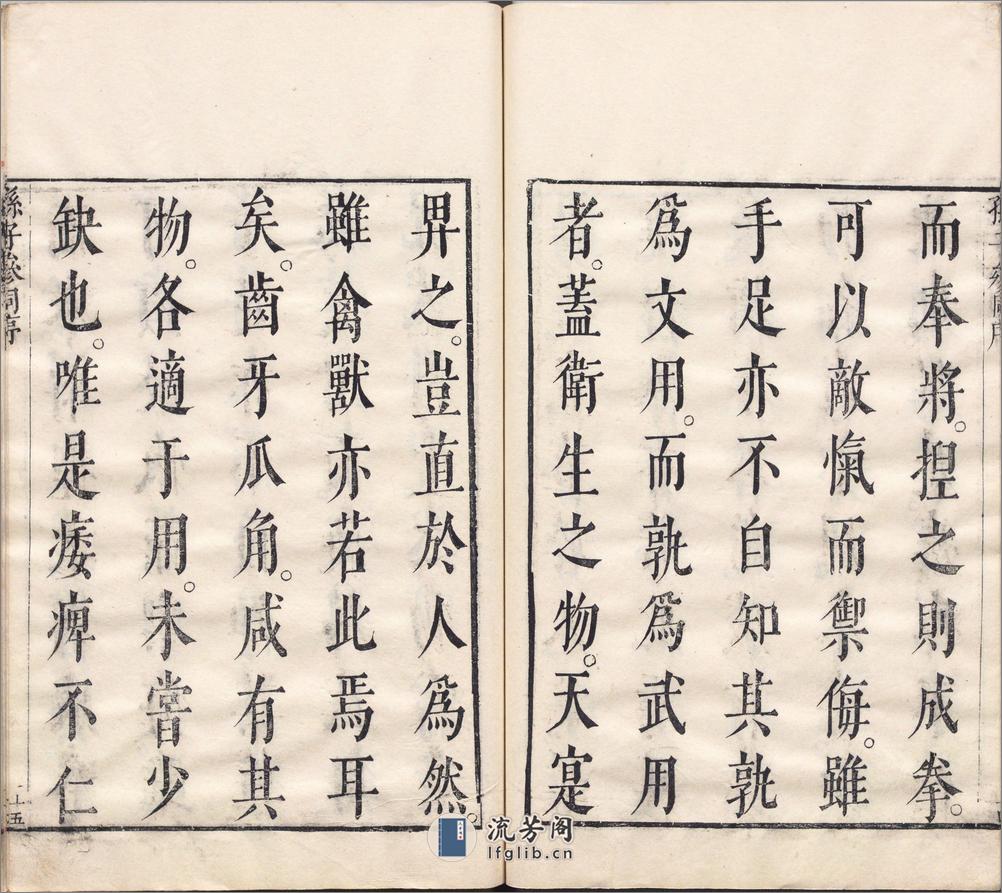 而奉將。揑之則成拳。
可以敵愾而禦侮。雖
手足亦不自知其孰
爲文用。而孰爲武用
者。蓋衛生之物。天寔
畀之。豈直於人爲然。
雖禽獸亦若此焉耳
矣。齒牙爪角。咸有其
物。各適于用。未嘗少
缺也。唯是痿痺不仁
孫子參同序
十五
流芳阁
lfglib.cn